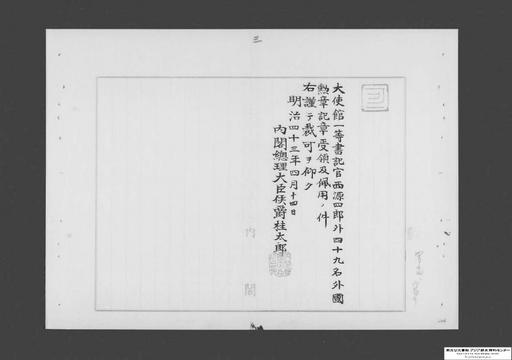 三
大使館一等書記官西源四郎外四十九名外國
勲章記章受領及佩用ノ件
右謹テ裁可ヲ仰ク
明治四十三年四月十四日
内閣總理大臣侯爵桂太郎
内閣